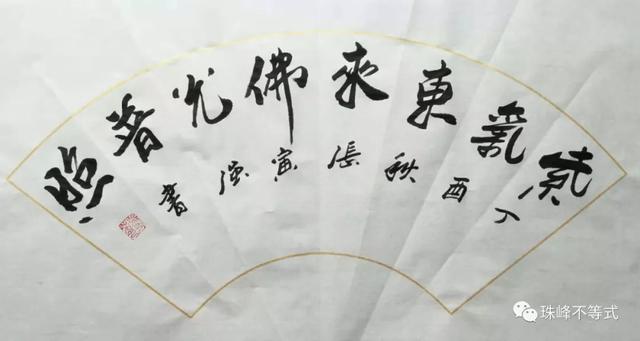 紫氣東來佛光普照
丁酉秋張寅强書
珠峰不等式